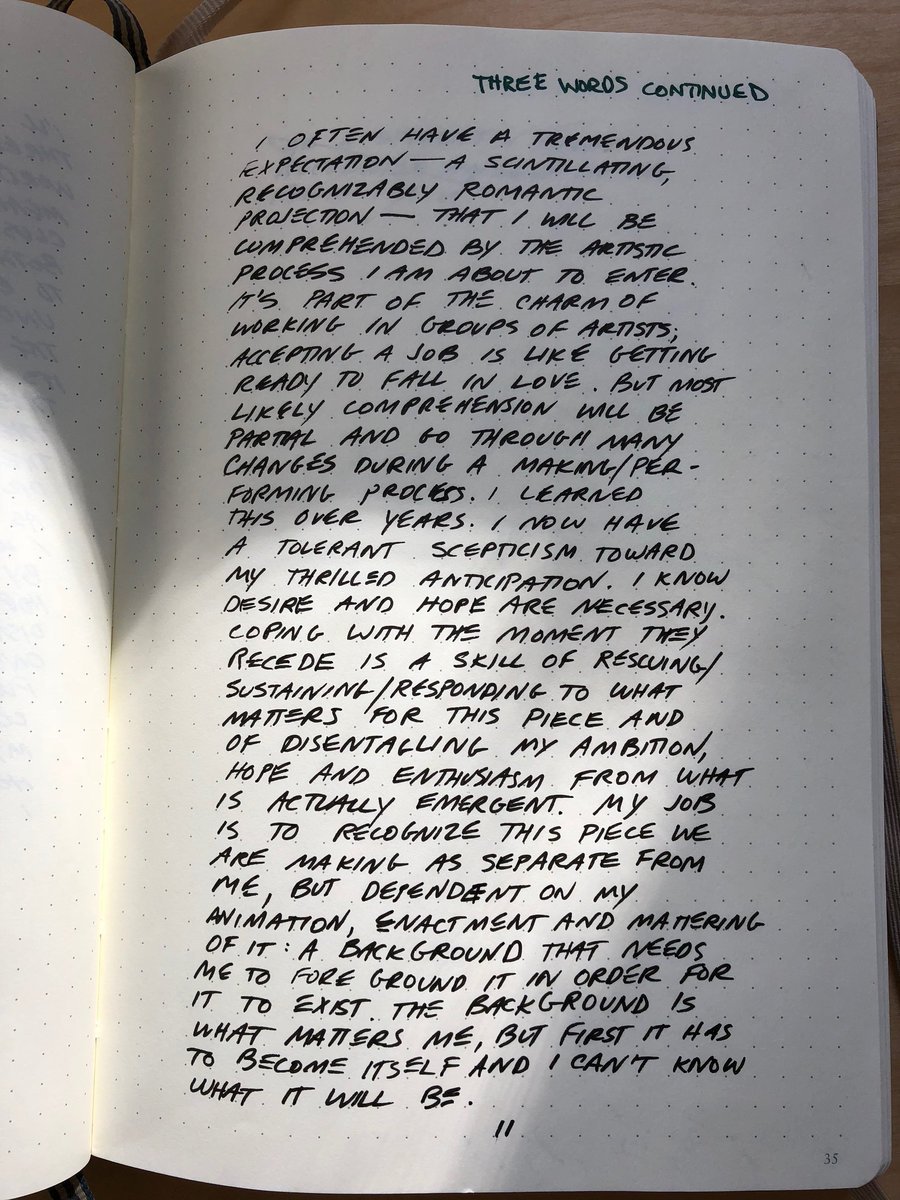 THREE WORDS CONTINUED
I OFTEN HAVE A TREMENDOUS
EXPECTATION — A SCINTILLATING,
RECOGNIZABLY ROMANTIC
PROJECTION — THAT I WILL BE
COMPREHENDED BY THE ARTISTIC
PROCESS I AM ABOUT TO ENTER.
IT'S PART OF THE CHARM OF
WORKING IN GROUPS OF ARTISTS;
ACCEPTING A JOB IS LIKE GETTING
READY TO FALL IN LOVE. BUT MOST
LIKELY COMPREHENSION WILL BE
PARTIAL AND GO THROUGH MANY
CHANGES DURING A MAKING/PER-
FORMING PROCESS. I LEARNED
THIS OVER YEARS. I NOW HAVE
A TOLERANT SCEPTICISM TOWARD
MY THRILLED ANTICIPATION. I KNOW
DESIRE AND HOPE ARE NECESSARY.
COPING WITH THE MOMENT THEY
RECEDE IS A SKILL OF RESCUING/
SUSTAINING/RESPONDING TO WHAT
MATTERS FOR THIS PIECE AND
OF DISENTAGLING MY AMBITION,
HOPE AND ENTHUSIASM FROM WHAT
IS ACTUALLY EMERGENT. MY JOB
IS TO RECOGNIZE THIS PIECE WE
ARE MAKING AS SEPARATE FROM
ME, BUT DEPENDENT ON MY
ANIMATION, ENACTMENT AND MATTERING
OF IT: A BACKGROUND THAT NEEDS
ME TO FORE GROUND IT IN ORDER FOR
IT TO EXIST. THE BACKGROUND IS
WHAT MATTERS ME, BUT FIRST IT HAS
TO BECOME ITSELF AND I CAN'T KNOW
WHAT IT WILL BE.
11
35